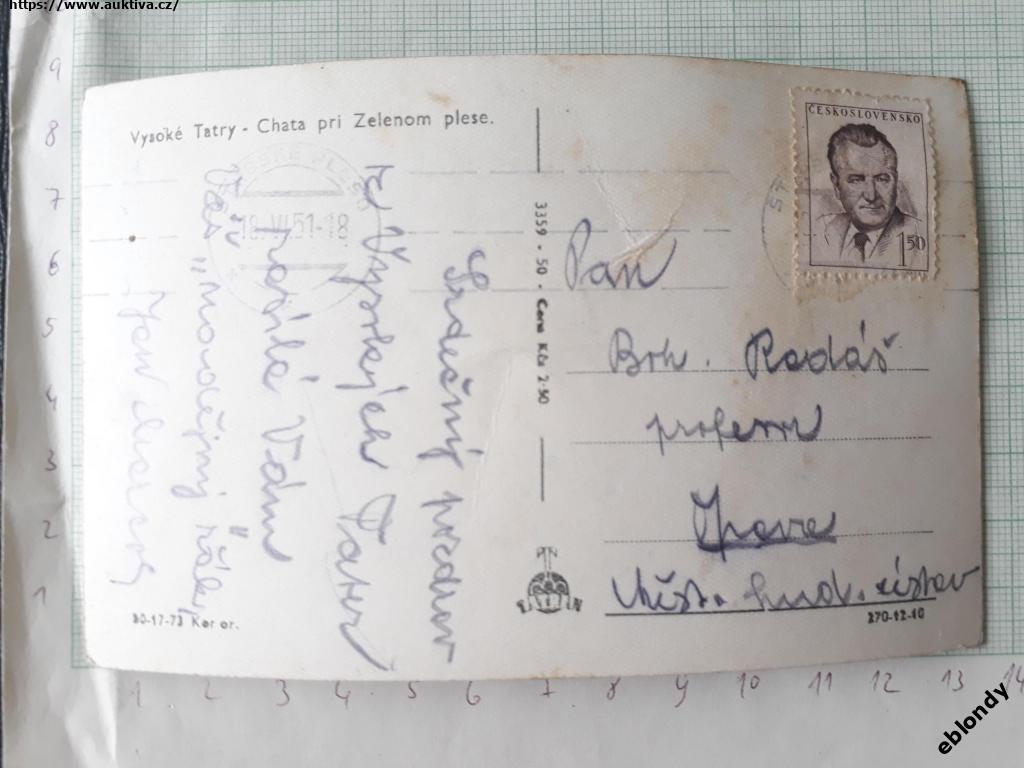 https://www.auktiva.cz/
Vysoké Tatry - Chata pri Zelenom plese.
ČESKOSLOVENSKO
1.50
18.VI.51-18
Srdečný pozdrav
z Vysokých Tater
posílá Vám
Váš
Jan
3359 - 50 - Cena Kčs 2·50
Pan
Boh. Radáš
profesor
Opava
Měst. hud. ústav
30-17-73 Kor or.
370-12-10
9
8
7
6
5
4
3
2
1
1 2 3 4 5 6 7 8 9 10 11 12 13 14
eblondy